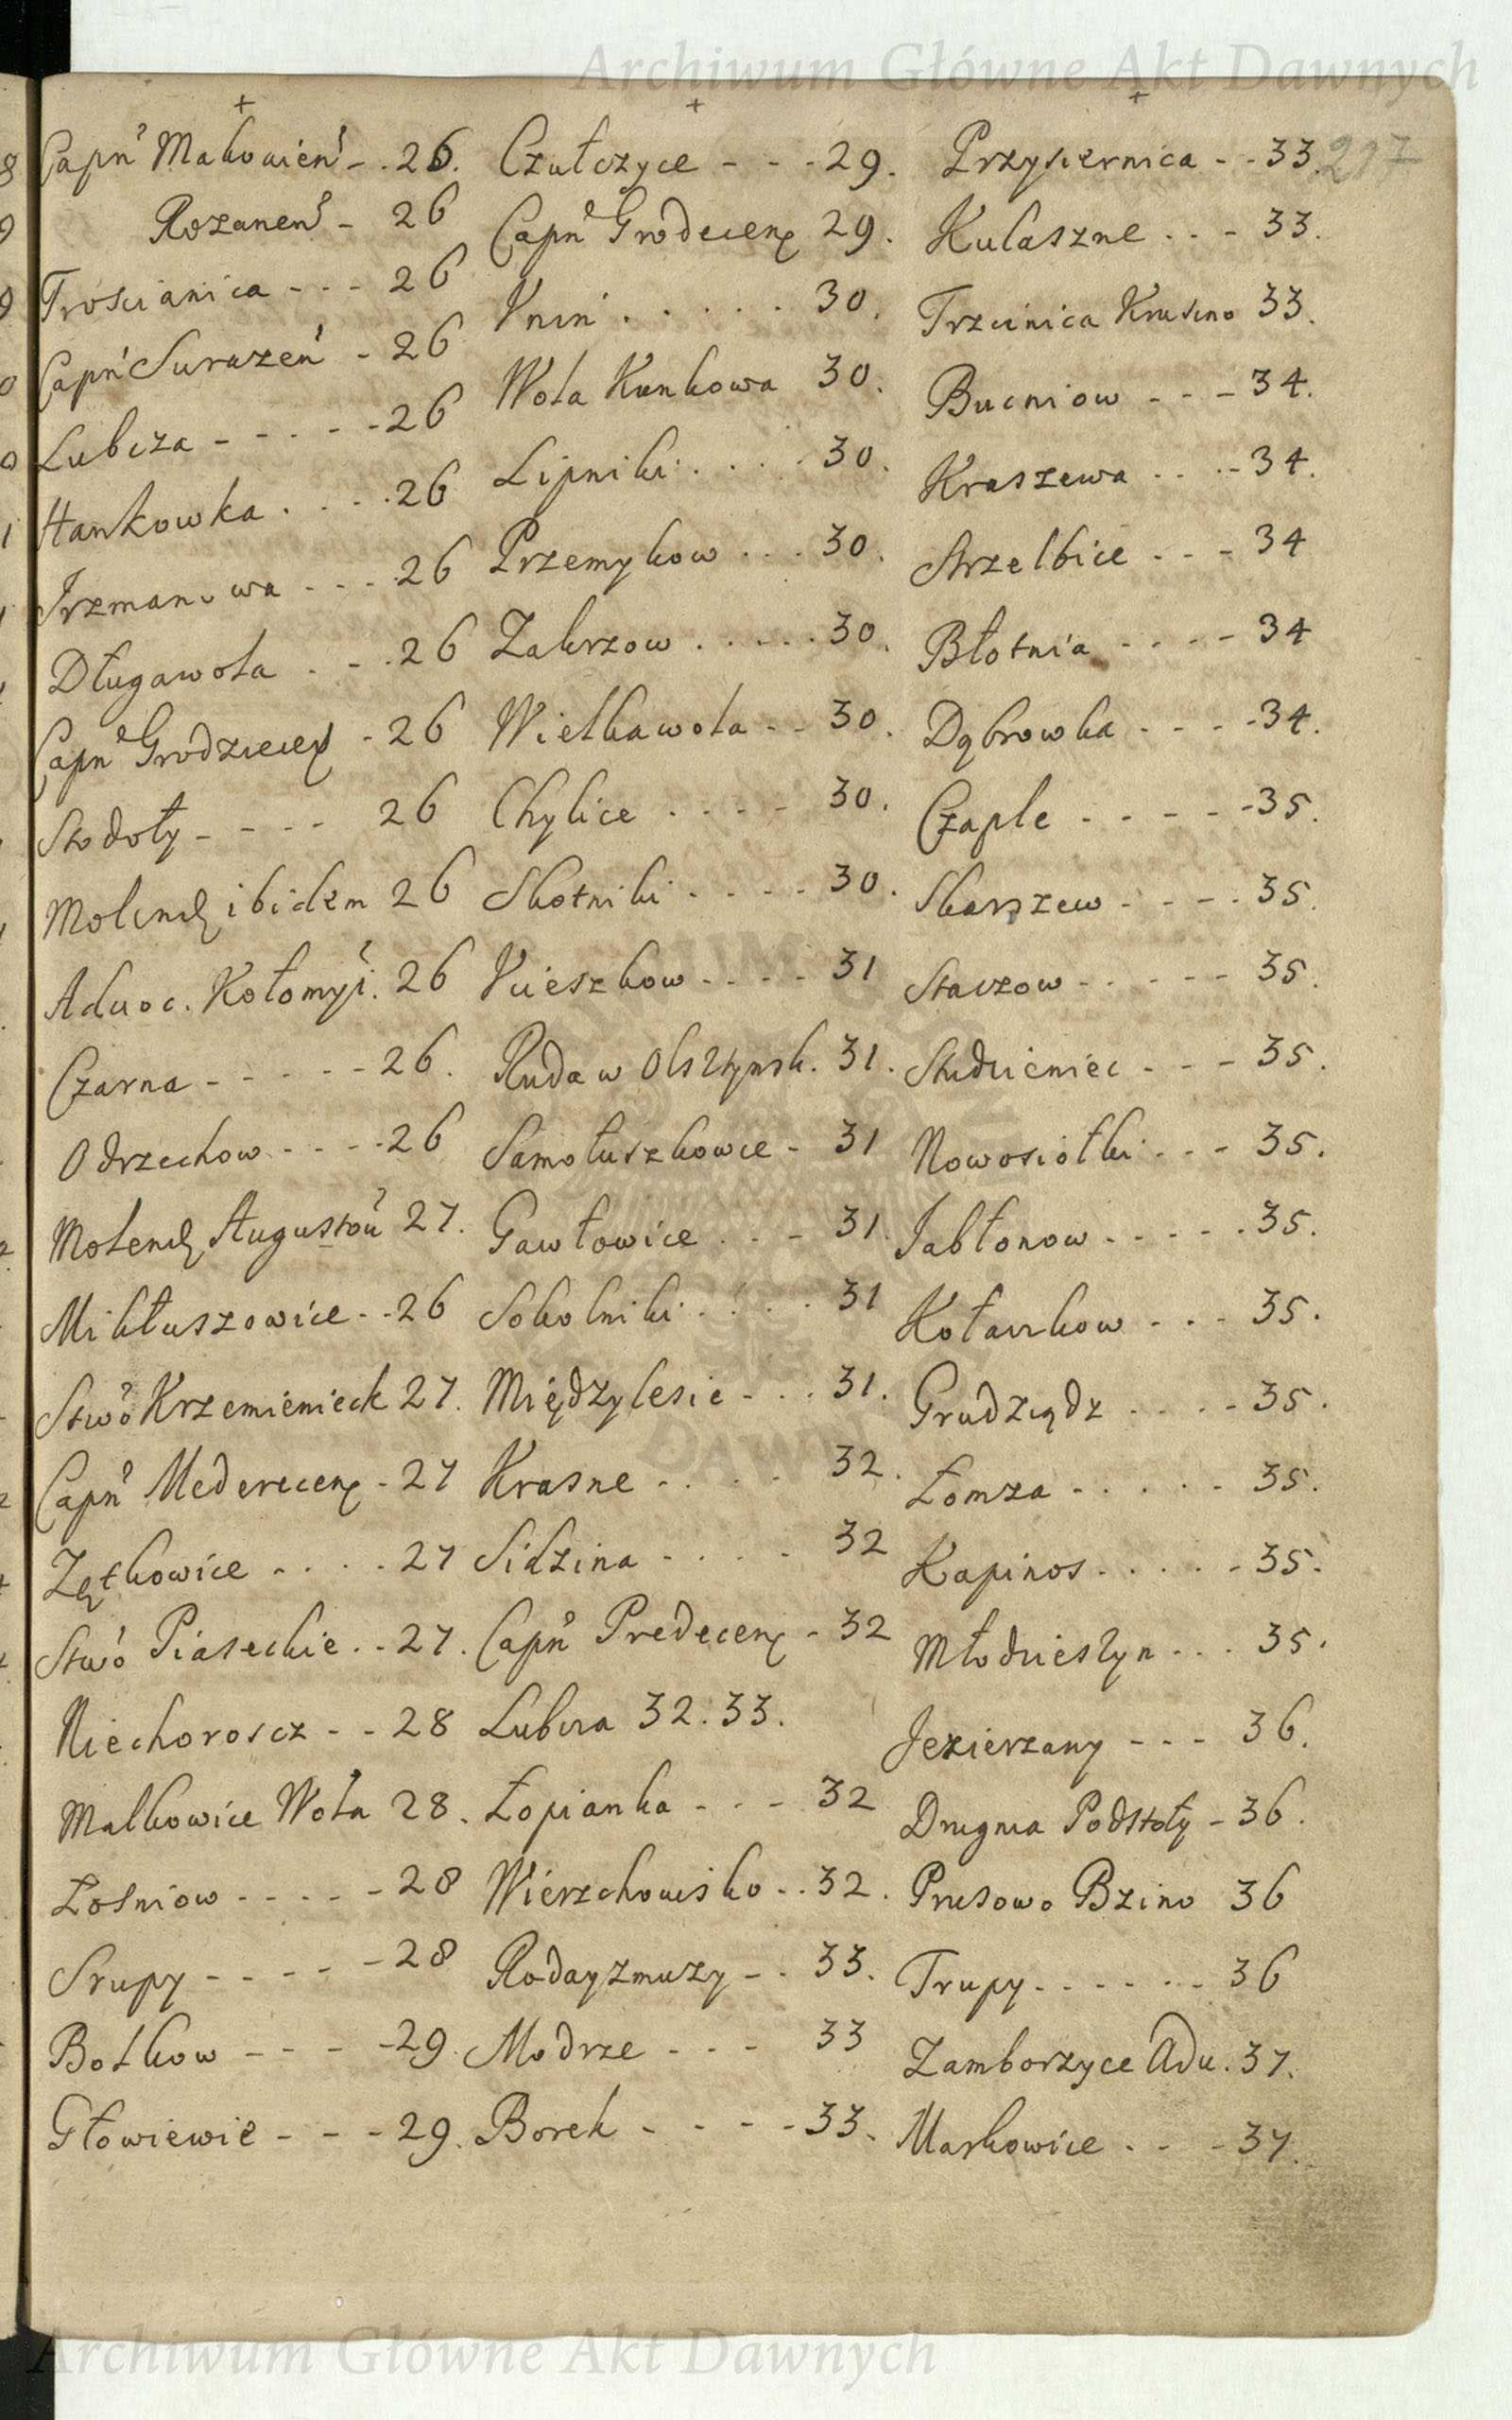 Archiwum Główne Akt Dawnych
217
+
Capn Makowień - . 26.
Rozaneń - 26
Troscianica - - - 26
Capń Surazeń - 26
Lubcza - - - - - 26
Hankowka . . . . 26
Irzmanowa - - - 26
Długawola . - . 26
Capn Grodziecen - 26
Stodoły - - - - 26
Molend ibidem 26
Aduoc. Kołomyi. 26
Czarna - - - - - 26.
Odrzechow - - - - 26
Molend Augustow 27.
Mikłuszowice - - 26
Stwo Krzemienieck 27.
Capn Mederecen - 27
Zętkowice . . . . 27
Stwo Piaseckie . . 27.
Niechoroscz - - 28
Malkowice Wola 28.
Łosniow - - - - - 28
Srupy - - - - - 28
Botkow - - - - 29.
Głowiewie - - - 29.
+
Czułczyce - - - 29.
Capn Grodecen 29.
Knin . . . . . 30.
Wola Kunkowa 30.
Lipniki . . . . 30.
Przemykow . . . 30.
Zakrzow . . . . . 30.
Wielkawola - - 30.
Chylice . . . - 30.
Skotniki - - - - 30.
Kieszkow - - - - 31
Ruda w Olsztynsk. 31.
Samołuszkowce - 31
Gawłowice . - - 31.
Sokolniki . . . . 31
Międzylesie - . . 31.
Krasne - . . . 32.
Sidzina - . . - 32
Capn Predecen - 32
Lubcza 32. 33.
Łopianka - - - 32
Wierzchowisko . . 32.
Rodayzmuzy - . 33.
Modrze - - - 33
Borek - - - - 33.
+
Przysiernica - - 33.
Kulaszne . . - 33.
Trzcinica Krusino 33.
Bucniow - - - 34.
Kraszewa . . . - 34.
Strzelbice - - - 34
Błotnia - - - - 34
Dąbrowka - - - - 34.
Czaple - - - - - 35.
Skarszew - - - - 35.
Staczow - - - - - 35.
Studzieniec - - - 35.
Nowosiołki - - - 35.
Jabłonow - - - - - 35.
Kołaczkow - - - 35.
Grudziądz . . . - 35.
Łomza - . . . - 35.
Kapinos . . . . - 35.
Młodzieszyn - . . 35.
Jezierzany - - - 36.
Drugnia Podstoły - 36.
Prusowo Bzino 36
Trupy - - - - - - 36
Zamborzyce Adu. 37.
Markowice . - - 37.
Archiwum Główne Akt Dawnych